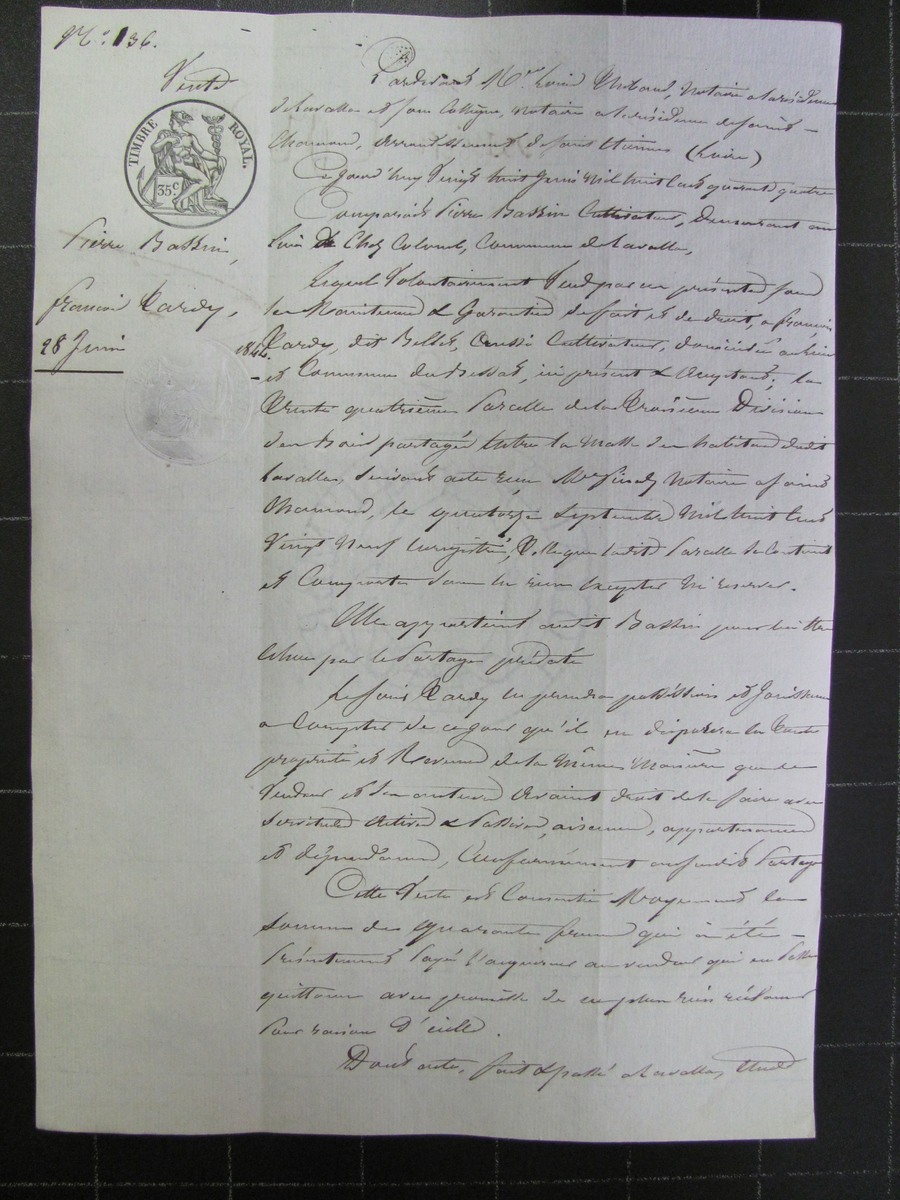 N.º 136.
Vente
TIMBRE ROYAL.
35 c
Pierre Bassin,
François Tardy,
28 Juin 1844.
Pardevant M.re Louis Thibaud, Notaire a la résidence
de Lavalla et son collègue, notaire a la résidence de saint
Chamond, arrondissement de saint Etienne (Loire)
Ce jourd'huy vingt huit Juin mil huit cent quarante quatre
Comparait Pierre Bassin Cultivateur, demeurant au
lieu de Chez Colomb, Commune de Lavalla,
Lequel volontairement vend par ces présentes, sous
les Maintenue & Garantie de fait et de droit, a françois
Tardy, dit aussi Cultivateur, domicilié au lieu
et Commune du Bessat, ici présent & acceptant; la
Trente quatrième Parcelle de la Troisième Division
des bois partagés entre la Masse des habitans dudit
Lavalla, suivant acte reçu Me Notaire a saint
Chamond, le quatorze septembre mil huit cent
vingt neuf enregistré, Telle que ladite Parcelle se Contient
et Comporte sans en rien excepter ni réserver.
Elle appartient audit Bassin pour lui être
échue par le Partage prédaté
Le sieur Tardy en prendra possession et Jouissance
a Compter de ce jour qu'il en disposera en toute
propriété et Revenu de la même Manière que le
Vendeur et ses auteurs avaient droit de le faire avec
servitudes actives & Passives, aisances, appartenances
et dépendances, Conformément au susdit Partage
Cette Vente est Consentie Moyennant la
somme de Quarante francs qui a été
Présentement Payé l'acquéreur au vendeur qui en Passe
quittance avec promesse de ne plus rien réclamer
Pour raison D'icelle.
Dont acte, fait & passé a Lavalla, Etude